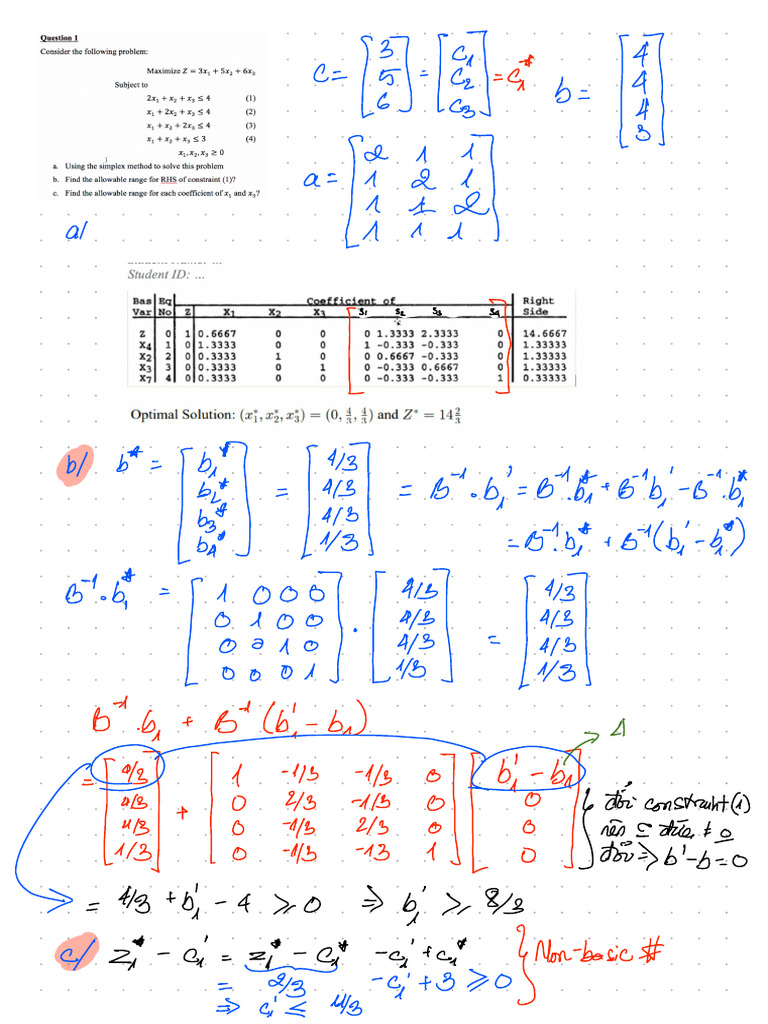 Question 1
Consider the following problem:
Maximize Z = 3x₁ + 5x₂ + 6x₃
Subject to
2x₁ + x₂ + x₃ ≤ 4 (1)
x₁ + 2x₂ + x₃ ≤ 4 (2)
x₁ + x₂ + 2x₃ ≤ 4 (3)
x₁ + x₂ + x₃ ≤ 3 (4)
x₁, x₂, x₃ ≥ 0
a. Using the simplex method to solve this problem
b. Find the allowable range for RHS of constraint (1)?
c. Find the allowable range for each coefficient of x₁ and x₃?
c = [3 5 6] = [c₁ c₂ c₃] = c₁*
b = [4 4 4 3]
a = [2 1 1
1 2 1
1 1 2
1 1 1]
a/
Student ID: ...
Bas Eq Coefficient of Right
Var No Z X₁ X₂ X₃ S₁ S₂ S₃ S₄ Side
Z 0 1 0.6667 0 0 0 1.3333 2.3333 0 14.6667
X₄ 1 0 1.3333 0 0 1 -0.333 -0.333 0 1.33333
X₂ 2 0 0.3333 1 0 0 0.6667 -0.333 0 1.33333
X₃ 3 0 0.3333 0 1 0 -0.333 0.6667 0 1.33333
X₇ 4 0 0.3333 0 0 0 -0.333 -0.333 1 0.33333
Optimal Solution: (x₁*, x₂*, x₃*) = (0, 4/3, 4/3) and Z* = 14 2/3
b/ b* = [b₁* b₂* b₃* b₄*] = [4/3 4/3 4/3 1/3] = B⁻¹.b₁' = B⁻¹.b₁* + B⁻¹b₁' - B⁻¹.b₁*
= B⁻¹.b₁* + B⁻¹(b₁' - b₁*)
B⁻¹.b₁* = [1 0 0 0
0 1 0 0
0 0 1 0
0 0 0 1] . [4/3 4/3 4/3 1/3] = [4/3 4/3 4/3 1/3]
B⁻¹.b₁ + B⁻¹(b₁' - b₁)
→ Δ
= [4/3] + [1 -1/3 -1/3 0] [b₁' - b₁]
[4/3] [0 2/3 -1/3 0] [0]
[4/3] [0 -1/3 2/3 0] [0]
[1/3] [0 -1/3 -13 1] [0]
đổi constraint (1)
≠ 0
⇒ b' - b = 0
= 4/3 + b₁' - 4 ≥ 0 ⇒ b₁' ≥ 8/3
c/ z₁* - c₁' = z₁* - c₁* - c₁' + c₁* } Non-basic #
= 2/3 - c₁' + 3 ≥ 0
⇒ c₁' ≤ 11/3